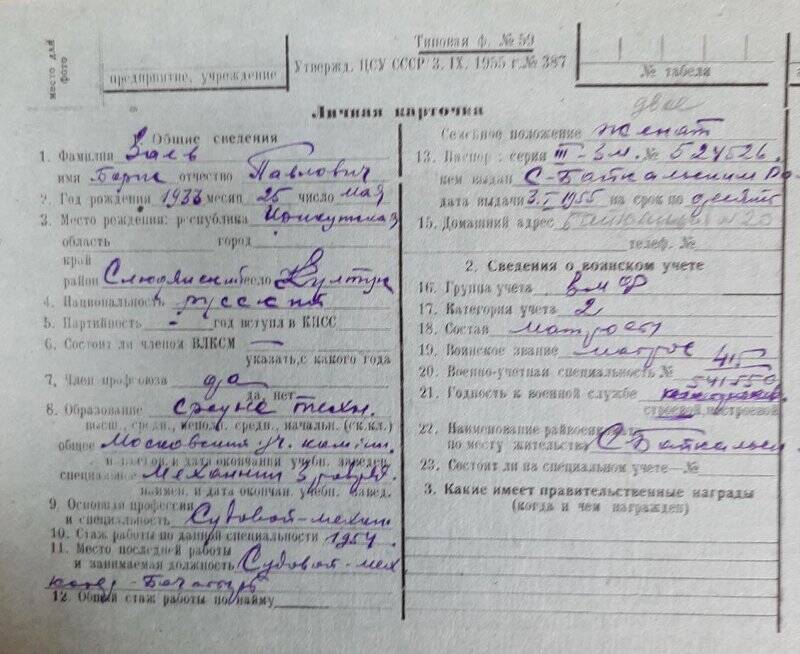 место для
фото
предприятие, учреждение
Типовая ф. № 59
Утвержд. ЦСУ СССР 3. IX. 1955 г. № 387
№ табеля
Личная карточка
1. Общие сведения
1. Фамилия Заев
имя Борис отчество Павлович
2. Год рождения 1933 месяц 25 число мая
3. Место рождения: республика Иркутская
область город
край
район Слюдянский село Култук
4. Национальность русский
5. Партийность - год вступ. в КПСС
6. Состоит ли членом ВЛКСМ —
указать, с какого года
7. Член профсоюза да
да, нет
8. Образование средне техн.
высш., средн., непол. средн., начальн. (ск. кл.)
общее Московский уч.
и дата окончания учебн. заведен.
специальное Механик 3 разряд.
наимен. и дата окончан. учебн. завед.
9. Основная профессия
и специальность Судовой-механ
10. Стаж работы по данной специальности 1954
11. Место последней работы
и занимаемая должность Судовой-мех
катер -
12. Общий стаж работы по найму
двое
Семейное положение женат
13. Паспорт: серия III-ЗМ. № 524526
кем выдан С-Байкальским
дата выдачи 3.I 1955 на срок по десять
15. Домашний адрес № 20
телеф. №
2. Сведения о воинском учете
16. Группа учета ВМФ
17. Категория учета 2
18. Состав матросы
19. Воинское звание матрос
20. Военно-учетная специальность №
21. Годность к военной службе
строевой, нестроевой
22. Наименование райвоенкомата
по месту жительства С Байкальск
23. Состоит ли на специальном учете — №
3. Какие имеет правительственные награды
(когда и чем награжден)